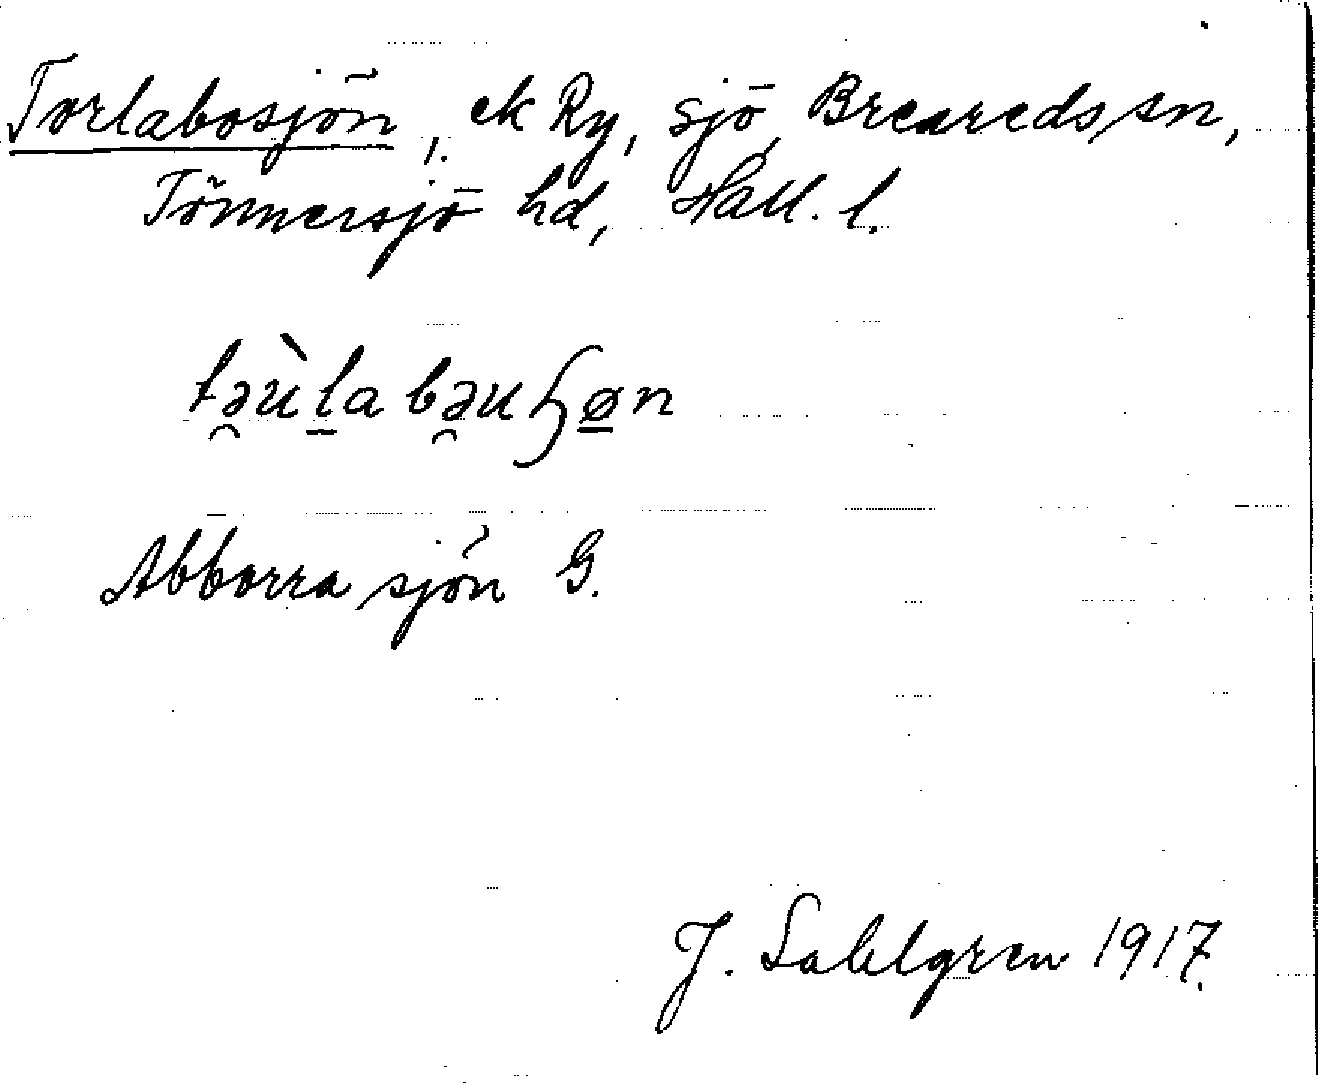 Torlabosjön, ek Ry, sjö, Breareds sn,
Tönnersjö hd, Hall. l.
tə̯ùl̠abə̯uɧø̠n
Abborrasjön G.
J. Sahlgren 1917.